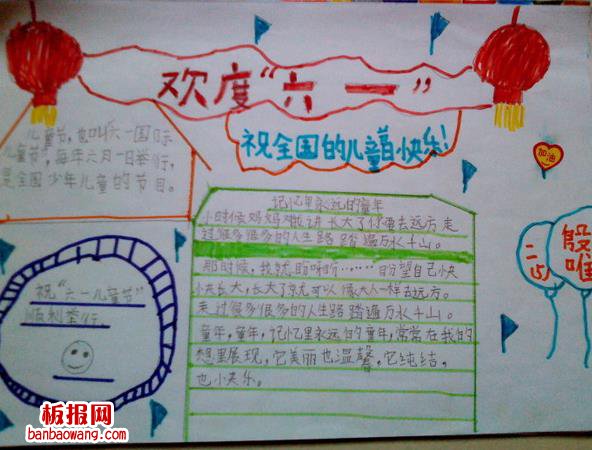 欢度“六一”
祝全国的儿童快乐!
儿童节，也叫六一国际
儿童节，每年六月1日举行，
是全国少年儿童的节目。
加油
记忆里永远的童年
小时候妈妈对我讲长大了你要去远方走
过很多很多的人生路踏遍万水千山。
那时候，我就盼呀盼……盼望自己快
快长大，长大了就可以像大人一样去远方。
走过很多很多的人生路踏遍万水千山。
童年，童年，记忆里永远的童年，常常在我的
想里展现，它美丽也温馨，它纯结，
也小快乐。
祝“六一儿童节”
顺利举行
二
殷
唯
板报网
banbaowang.com